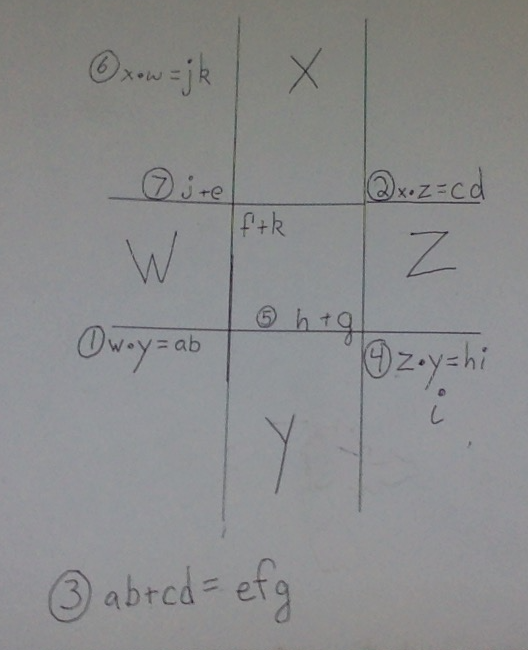 ⑥ x•w=jk
X
⑦ j+e
② x•z=cd
f+k
W
Z
⑤ h+g
① w•y=ab
④ z•y=hi
i
Y
③ ab+cd= efg